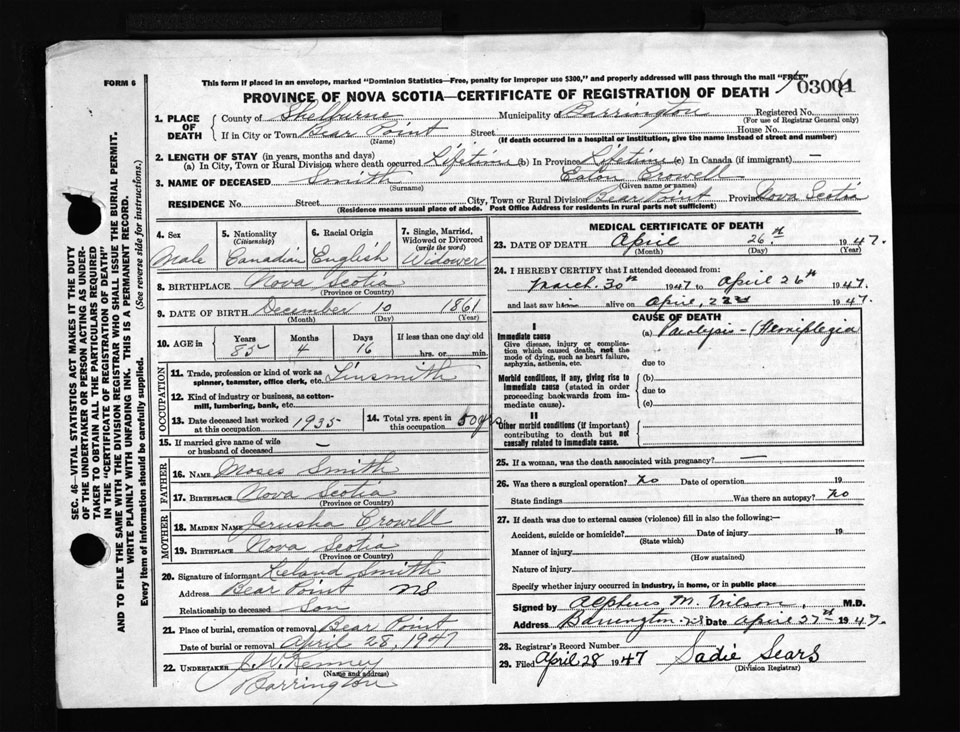 FORM 6
This form if placed in an envelope, marked "Dominion Statistics—Free, penalty for improper use $300," and properly addressed will pass through the mail "FREE"
PROVINCE OF NOVA SCOTIA—CERTIFICATE OF REGISTRATION OF DEATH
1. PLACE OF DEATH
County of Shelburne Municipality of Barrington Registered No.
(For use of Registrar General only)
If in City or Town Bear Point Street House No.
(Name) (If death occurred in a hospital or institution, give the name instead of street and number)
2. LENGTH OF STAY (in years, months and days)
(a) In City, Town or Rural Division where death occurred Lifetime (b) In Province Lifetime (c) In Canada (if immigrant) —
3. NAME OF DECEASED Smith Crowell
(Surname) (Given name or names)
RESIDENCE No. Street City, Town or Rural Division Bear Point Province Nova Scotia
(Residence means usual place of abode. Post Office Address for residents in rural parts not sufficient)
SEC. 46—VITAL STATISTICS ACT MAKES IT THE DUTY
OF THE UNDERTAKER OR PERSON ACTING AS UNDER-
TAKER TO OBTAIN ALL THE PARTICULARS REQUIRED
IN THE "CERTIFICATE OF REGISTRATION OF DEATH"
AND TO FILE THE SAME WITH THE DIVISION REGISTRAR WHO SHALL ISSUE THE BURIAL PERMIT.
WRITE PLAINLY WITH UNFADING INK. THIS IS A PERMANENT RECORD.
Every item of information should be carefully supplied. (See reverse side for instructions.)
4. Sex
Male
5. Nationality
(Citizenship)
Canadian
6. Racial Origin
English
7. Single, Married,
Widowed or Divorced
(write the word)
Widower
8. BIRTHPLACE Nova Scotia
(Province or Country)
9. DATE OF BIRTH December 10 1861
(Month) (Day) (Year)
10. AGE in Years Months Days If less than one day old
85 4 16 hrs. or min.
OCCUPATION
11. Trade, profession or kind of work as
spinner, teamster, office clerk, etc. Tinsmith
12. Kind of industry or business, as cotton-
mill, lumbering, bank, etc.
13. Date deceased last worked
at this occupation 1935
14. Total yrs. spent in
this occupation 50 yrs
15. If married give name of wife
or husband of deceased —
FATHER
16. NAME Moses Smith
17. BIRTHPLACE Nova Scotia
(Province or Country)
MOTHER
18. MAIDEN NAME Jerusha Crowell
19. BIRTHPLACE Nova Scotia
(Province or Country)
20. Signature of informant Leland Smith
Address Bear Point NS
Relationship to deceased Son
21. Place of burial, cremation or removal Bear Point
Date of burial or removal April 28, 1947
22. UNDERTAKER J. W. Kenney
(Name and address)
Barrington
MEDICAL CERTIFICATE OF DEATH
23. DATE OF DEATH April 26th 1947.
(Month) (Day) (Year)
24. I HEREBY CERTIFY that I attended deceased from:
March. 30th 1947 to April 26th 1947.
and last saw him alive on April, 22nd 1947.
CAUSE OF DEATH
I
Immediate cause
Give disease, injury or complica-
tion which caused death, not the
mode of dying, such as heart failure,
asphyxia, asthenia, etc.
(a) Paralysis - (Hemiplegia
due to
Morbid conditions, if any, giving rise to
immediate cause (stated in order
proceeding backwards from im-
mediate cause).
(b)
due to
(c)
II
Other morbid conditions (if important)
contributing to death but not
causally related to immediate cause.
25. If a woman, was the death associated with pregnancy? —
26. Was there a surgical operation? No Date of operation 19
State findings Was there an autopsy? No
27. If death was due to external causes (violence) fill in also the following:—
Accident, suicide or homicide? Date of injury 19
(State which)
Manner of injury
(How sustained)
Nature of injury
Specify whether injury occurred in industry, in home, or in public place
Signed by Alpheus M. Wilson, M.D.
Address Barrington N.S. Date April 27th 1947.
28. Registrar's Record Number
29. Filed April 28 1947 Sadie Sears
(Division Registrar)